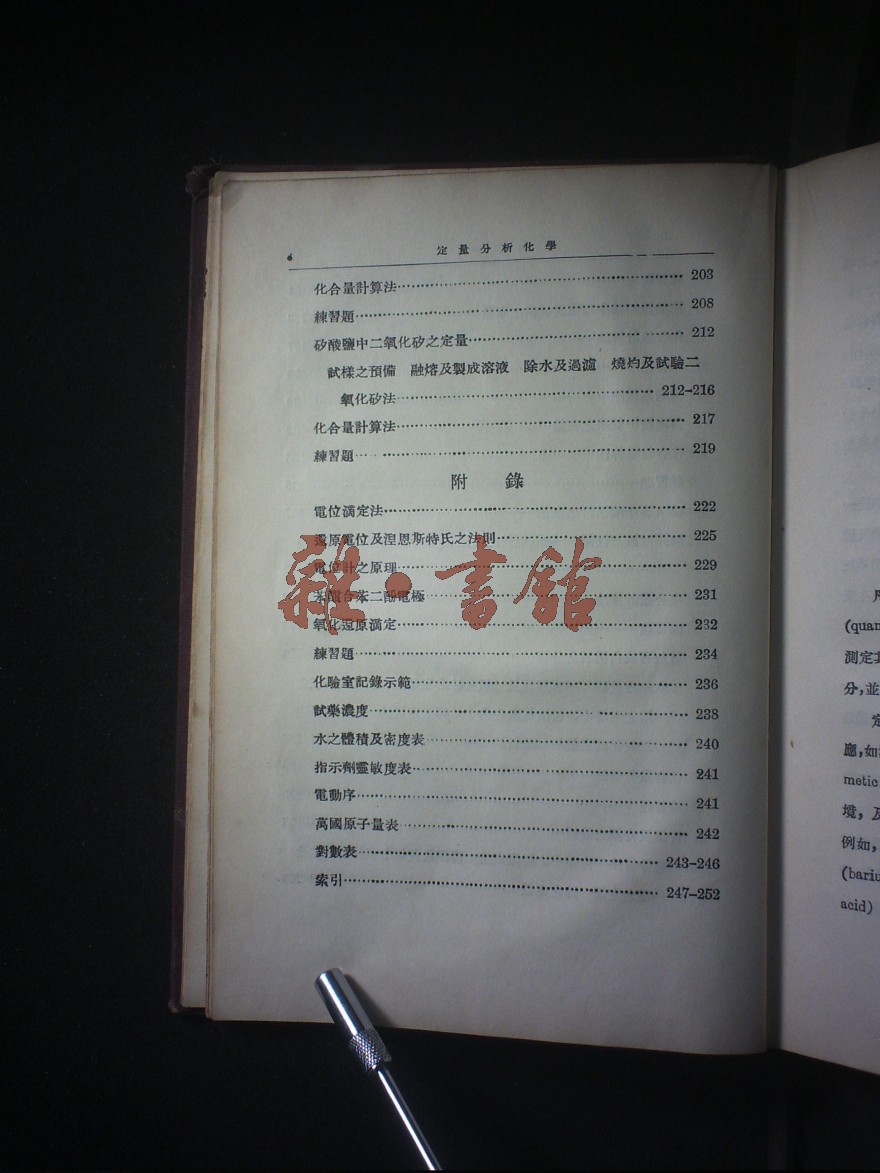 定量分析化學
化合量計算法 203
練習題 208
矽酸鹽中二氧化矽之定量 212
試樣之預備 融熔及製成溶液 除水及過濾 燒灼及試驗二
氧化矽法 212-216
化合量計算法 217
練習題 219
附錄
電位滴定法 222
還原電位及湼恩斯特氏之法則 225
電位計之原理 229
苯醌合苯二酚電極 231
氧化還原滴定 232
練習題 234
化驗室記錄示範 236
試藥濃度 238
水之體積及密度表 240
指示劑靈敏度表 241
電動序 241
萬國原子量表 242
對數表 243-246
索引 247-252
雜·書館
(quan
測定
分,並
定
應,如
metic
及
例如,
(bariu
acid)